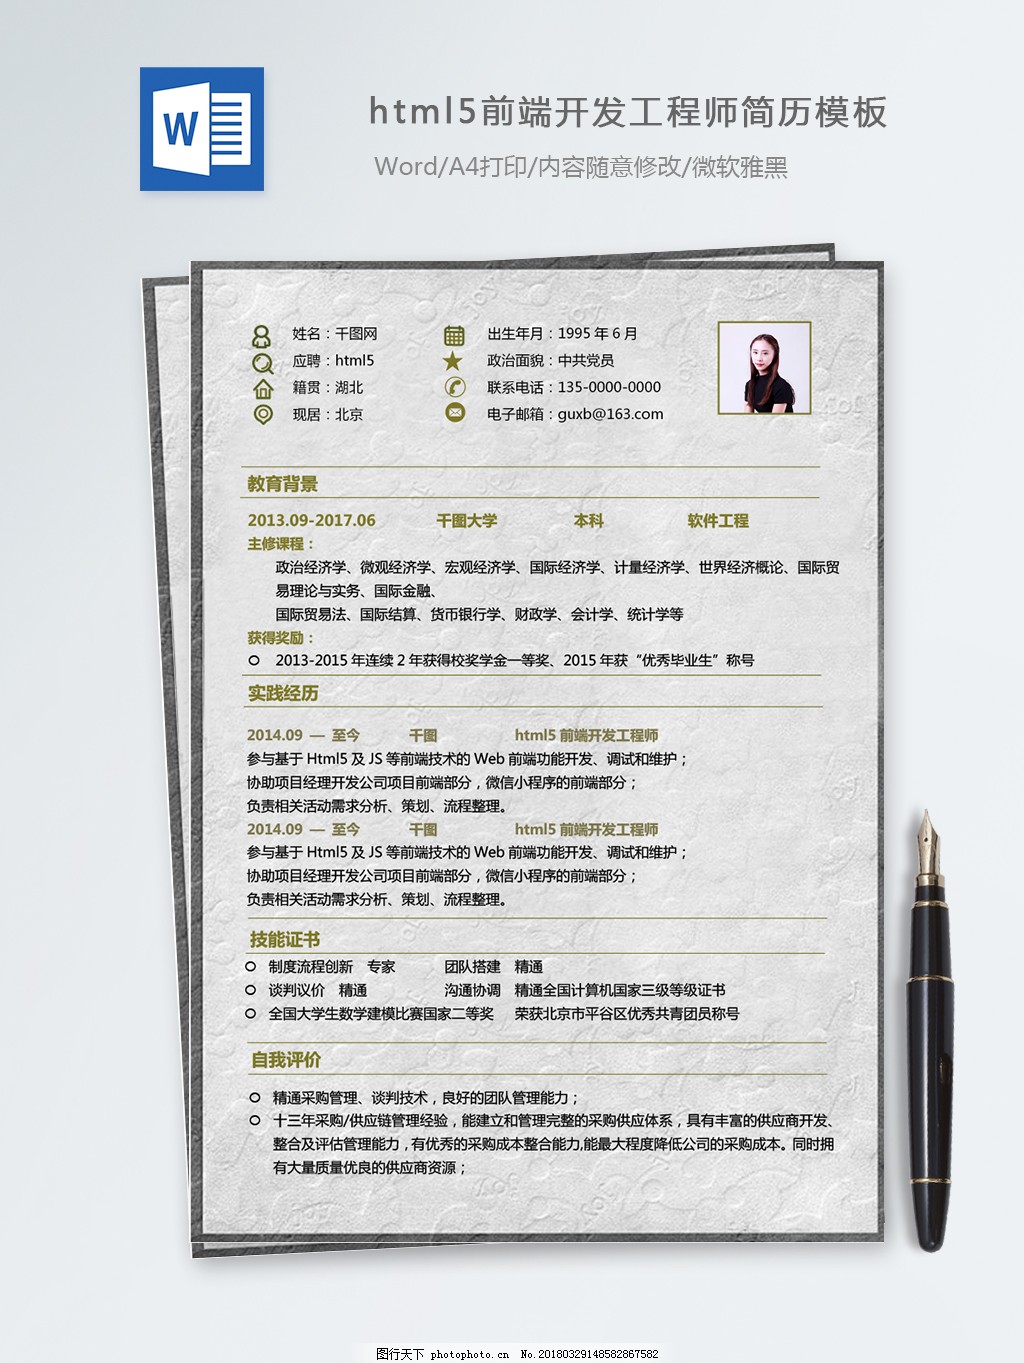 W
html5前端开发工程师简历模板
Word/A4打印/内容随意修改/微软雅黑
姓名：千图网
出生年月：1995 年 6 月
应聘：html5
政治面貌：中共党员
籍贯：湖北
联系电话：135-0000-0000
现居：北京
电子邮箱：guxb@163.com
教育背景
2013.09-2017.06 千图大学 本科 软件工程
主修课程：
政治经济学、微观经济学、宏观经济学、国际经济学、计量经济学、世界经济概论、国际贸
易理论与实务、国际金融、
国际贸易法、国际结算、货币银行学、财政学、会计学、统计学等
获得奖励：
2013-2015 年连续 2 年获得校奖学金一等奖、2015 年获“优秀毕业生”称号
实践经历
2014.09 — 至今 千图 html5 前端开发工程师
参与基于 Html5 及 JS 等前端技术的 Web 前端功能开发、调试和维护；
协助项目经理开发公司项目前端部分，微信小程序的前端部分；
负责相关活动需求分析、策划、流程整理。
2014.09 — 至今 千图 html5 前端开发工程师
参与基于 Html5 及 JS 等前端技术的 Web 前端功能开发、调试和维护；
协助项目经理开发公司项目前端部分，微信小程序的前端部分；
负责相关活动需求分析、策划、流程整理。
技能证书
制度流程创新 专家 团队搭建 精通
谈判议价 精通 沟通协调 精通全国计算机国家三级等级证书
全国大学生数学建模比赛国家二等奖 荣获北京市平谷区优秀共青团员称号
自我评价
精通采购管理、谈判技术，良好的团队管理能力；
十三年采购/供应链管理经验，能建立和管理完整的采购供应体系，具有丰富的供应商开发、
整合及评估管理能力，有优秀的采购成本整合能力,能最大程度降低公司的采购成本。同时拥
有大量质量优良的供应商资源；
图行天下 photophoto.cn No.20180329148582867582